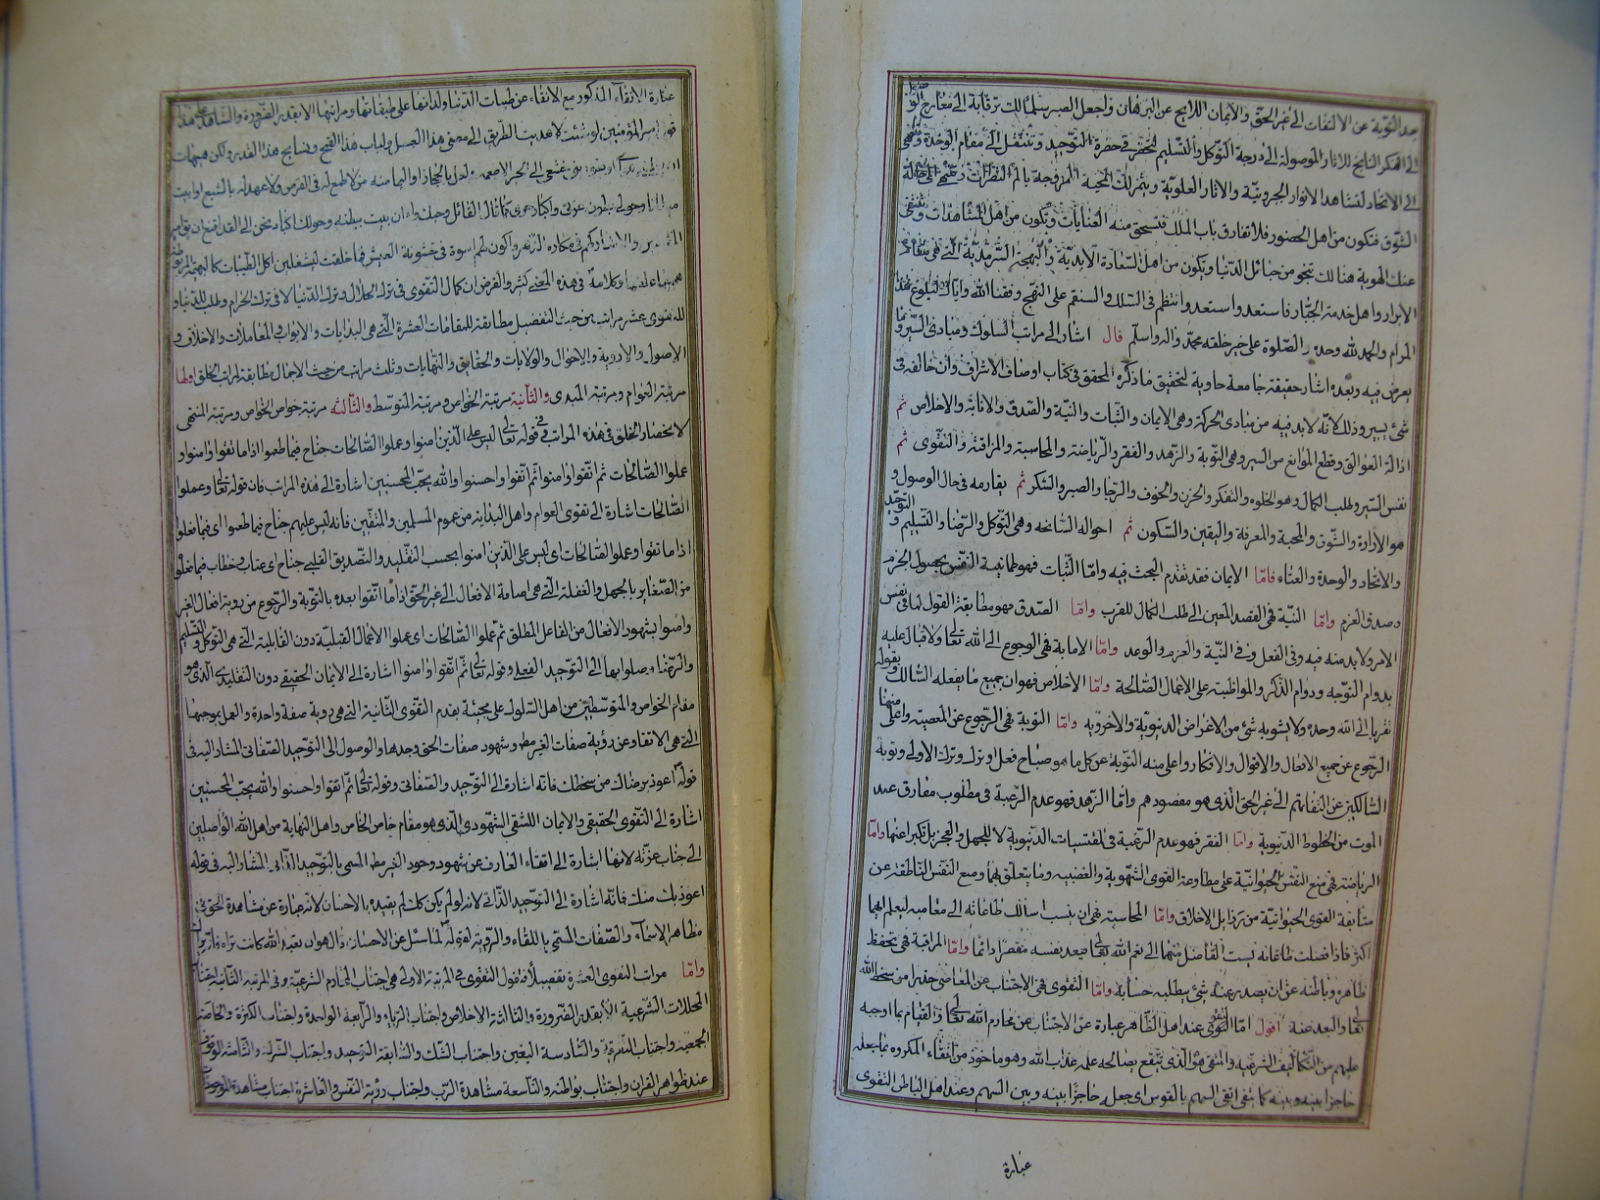 بعد التوبة عن الالتفات الى غير الحق والايمان اللايح عن البرهان واجعل الصبر سلمالك ترقابة الى معارج
الى الفكر الناتج للاثار الموصولة الى درجة التوكل والتسليم لتحقق في حضرة التوحيد وتنتقل الى مقام الوحدة
الى الاتحاد لتشاهد الانوار الجبروتية والاثار العلوية ويثمر لك المحبة الممزوجة بالم
الشوق فتكون من اهل الحضور فلا تفارق باب الملك فتستحق منه العنايات وتكون من اهل المشاهدات
عنك الهوية هنالك تنجو من حبائل الدنيا وتكون من اهل السعادة الابدية والبهجة السرمدية التي هي
الابرار واهل خدمة الجبار فاستعد واستعد وانتظم في السلك والسنقم على النهج وفقنا الله واياك لبلوغ هذا
المرام والحمد لله وحده والصلوة على خير خلقه محمد واله وسلم قال اشار الى مراتب السلوك ومبادى السير وما
يعرض فيه وبعده اشار حقيقة جامعة حاوية لتحقيق ما ذكره المحقق في كتاب اوصاف الاشراف وان خالفه في
شئ يسير وذلك لانه لا بد فيه من مبادى الحركة وهى الايمان والثبات والنية والصدق والانابة والاخلاص ثم
ازالة العوائق وقطع الموانع من السير وهى التوبة والزهد والفقر والرياضة والمحاسبة والمراقبة والتقوى ثم
نفس السير وطلب الكمال وهو الخلوه والتفكر والحزن والخوف والرجا والصبر والشكر ثم يقارنه في حال الوصول و
هو الارادة والشوق والمحبة والمعرفة واليقين والسكون ثم احواله السانحه وهى التوكل والرضا والتسليم و التوحيد
والاتحاد والوحدة والفناء فامّا الايمان فقد تقدم البحث فيه وامّا الثبات فهو طمانينة النفس بحصول الجزم
وصدق العزم وامّا النية فهى القصد المعين الى طلب الكمال للقرب وامّا الصدق فهو مطابقة القول لما في نفس
الامر ولا بد منه فيه وفى الفعل وفى النية والعزم والوعد وامّا الانابة فهى الرجوع الى الله تعالى والاقبال عليه
بدوام التوجه ودوام الذكر والمواظبة على الاعمال الصالحة وامّا الاخلاص فهو ان جميع ما يفعله السالك ويقوله
تقربا الى الله وحده ولا يشوبه شئ من الاغراض الدنيوية والاخروية وامّا التوبة فهى الرجوع عن المعصية واعلى منها
الرجوع عن جميع الافعال والاقوال والافكار واعلى منه التوبة عن كل ما هو مباح فعل او ترك وترك الاولى وتوبة
السالكين عن التفاتهم الى غير الحق الذى هو مقصودهم وامّا الزهد فهو عدم الرغبة في مطلوب مفارق عند
الموت من الحظوظ الدنيوية وامّا الفقر فهو عدم الرغبة في المقتنيات الدنيوية لا للجهل والعجز بل تكبرا عنها وامّا
الرياضة فهى منع النفس الحيوانية على مطاوعة القوى الشهوية والغضبيه وما يتعلق بهما ومنع النفس الناطقة عن
متابعة القوى الحيوانية من رذايل الاخلاق وامّا المحاسبة فهى ان ينسب السالك طاعاته الى معاصيه ليعلم ايهما
اكثر فاذا فضلت طاعاته نسب الفاضل منهما الى نعم الله تعالى فيعد نفسه مقصرا دائما وامّا المراقبة فهى تحفظ
ظاهره وباطنه عن ان يصدر عنه شئ يبطل به حسناته وامّا التقوى فهى الاجتناب عن المعاصى حذرا من سخط الله
تعالى والبعد عنه اقول امّا التقوى عند اهل الظاهر عبارة عن الاجتناب عن محارم الله تعالى والقيام بما اوجبه
عليهم من التكاليف الشرعيه والمتقى هو الذى يتقى بصالحه عمله عذاب الله وهو ماخوذ من اتقاء المكروه بما يجعله
حاجزا بينه وبينه كما يقى اتقى السهم بالقوس اى جعله حاجزا بينه وبين السهم وعند اهل الباطن التقوى
عبارة
عبارة الاتقاء المذكور مع الاتقاء عن طيبات الدنيا ولذاتها على طبقاتها ومراتبها الا بقدر الضرورة والشاهد على هذا
قول امير المؤمنين لو شئت لاهتديت الطريق الى مصفى هذا العسل ولباب هذا القمح ونسايج هذا القز ولكن هيهات
ان يغلبنى هواى ويقودنى جشعى الى تخير الاطعمه ولعل بالحجاز او اليمامه من لا طمع له في القرص ولا عهد له بالشبع او ابيت
مبطانا وحولى بطون غرثى واكباد حرى كما قال القائل وحسبك داء ان تبيت ببطنة وحولك اكباد تحن الى القد اقنع ان يقال امير
المؤمنين ولا اشاركهم في مكاره الدهر او اكون لهم اسوة في خشونة العيش فما خلقت ليشغلنى اكل الطيبات كالبهيمة المربوطة
همها علفها وكلامه في هذه المعنى كثير والغرض ان كمال التقوى في ترك الحلال وترك الدنيا لا في ترك الحرام وطلب الدنيا و
للتقوى عشر مراتب من حيث التفصيل مطابقة للمقامات العشرة التى هى البدايات والابواب والمعاملات والاخلاق و
الاصول والاودية والاحوال والولايات والحقايق والنهايات وثلث مراتب من حيث الاجمال مطابقة لمراتب الخلق اولها
مرتبة العوام ومرتبة المبتدى والثانية مرتبة الخواص ومرتبة المتوسط والثالثه مرتبة خواص الخواص ومرتبة المنتهى
لانحصار الخلق في هذه المراتب في قوله تعالى ليس على الذين امنوا وعملوا الصالحات جناح فيما طعموا اذا ما اتقوا وامنوا و
عملوا الصالحات ثم اتقوا وامنوا ثم اتقوا واحسنوا والله يحب المحسنين اشارة الى هذه المراتب فان قوله تعالى وعملوا
الصالحات اشارة الى تقوى العوام واهل البداية من عموم المسلمين والمتقين فانه ليس عليهم جناح فيما طعموا اى فيما فعلوا
اذا ما اتقوا وعملوا الصالحات اى ليس على الذين امنوا بحسب التقليد والتصديق القلبى جناح اى عتاب وخطاب فيما فعلوا
من الصغاير بالجهل والغفلة التى هى اضافة الافعال الى غير الحق اذا ما اتقوا بعده بالتوبة والرجوع من روية افعال الغير
وامنوا بشهود الافعال من الفاعل المطلق ثم عملوا الصالحات اى عملوا الاعمال القبلية دون القابلية التى هى التوكل والتسليم
والرضا وصلوا بها الى التوحيد الفعلى وقوله تعالى ثم اتقوا وامنوا اشارة الى الايمان الحقيقى دون التقليدى الذى هو
مقام الخواص والمتوسطين من اهل السلوك على محبة بقدم التقوى الثانية التى هى روية صفة واحدة والعمل بموجبها
التى هى الاتقاء عن رؤية صفات الغير مط وشهود صفات الحق وحدها والوصول الى التوحيد الصفاتى المشار اليه في
قوله اعوذ برضاك من سخطك فانه اشارة الى التوحيد والصفاتى وقوله تعالى ثم اتقوا واحسنوا والله يحب المحسنين
اشارة الى التقوى الحقيقى والايمان الكشفى الشهودى الذى هو مقام خاص الخاص واهل النهاية من اهل الله الواصلين
الى جناب عزته لانها اشارة الى اتقاء العارف عن شهود وجود الغير مط المسمى بالتوحيد الذاتى المشار اليه في قوله
اعوذ بك منك فانه اشارة الى التوحيد الذاتى لانه لو لم يكن كك لم يقيده بالاحسان لانه عبارة عن مشاهدة الحق في
مظاهر الاسماء والصفات المسمى باللقاء والروية لقوله لما سئل عن الاحسان قال هو ان تعبد الله كانك تراه فان لم
وامّا مراتب التقوى العشرة تفصيلا فنقول التقوى في المرتبة الاولى هى اجتناب المحارم الشرعية وفى المرتبة الثانية اجتناب
المحللات الشرعية الا بقدر الضرورة والثالثة الاخلاص واجتناب الرياء والرابعة الواحدة واجتناب الكثرة والخامسة
الجمعية واجتناب التفرقة والسادسة اليقين واجتناب الشك والسابعة التوحيد واجتناب الشرك والثامنة الوقوف
عند ظواهر القران واجتناب بواطنه والتاسعة مشاهدة الرب واجتناب رؤية النفس والعاشرة اجتناب مشاهدة